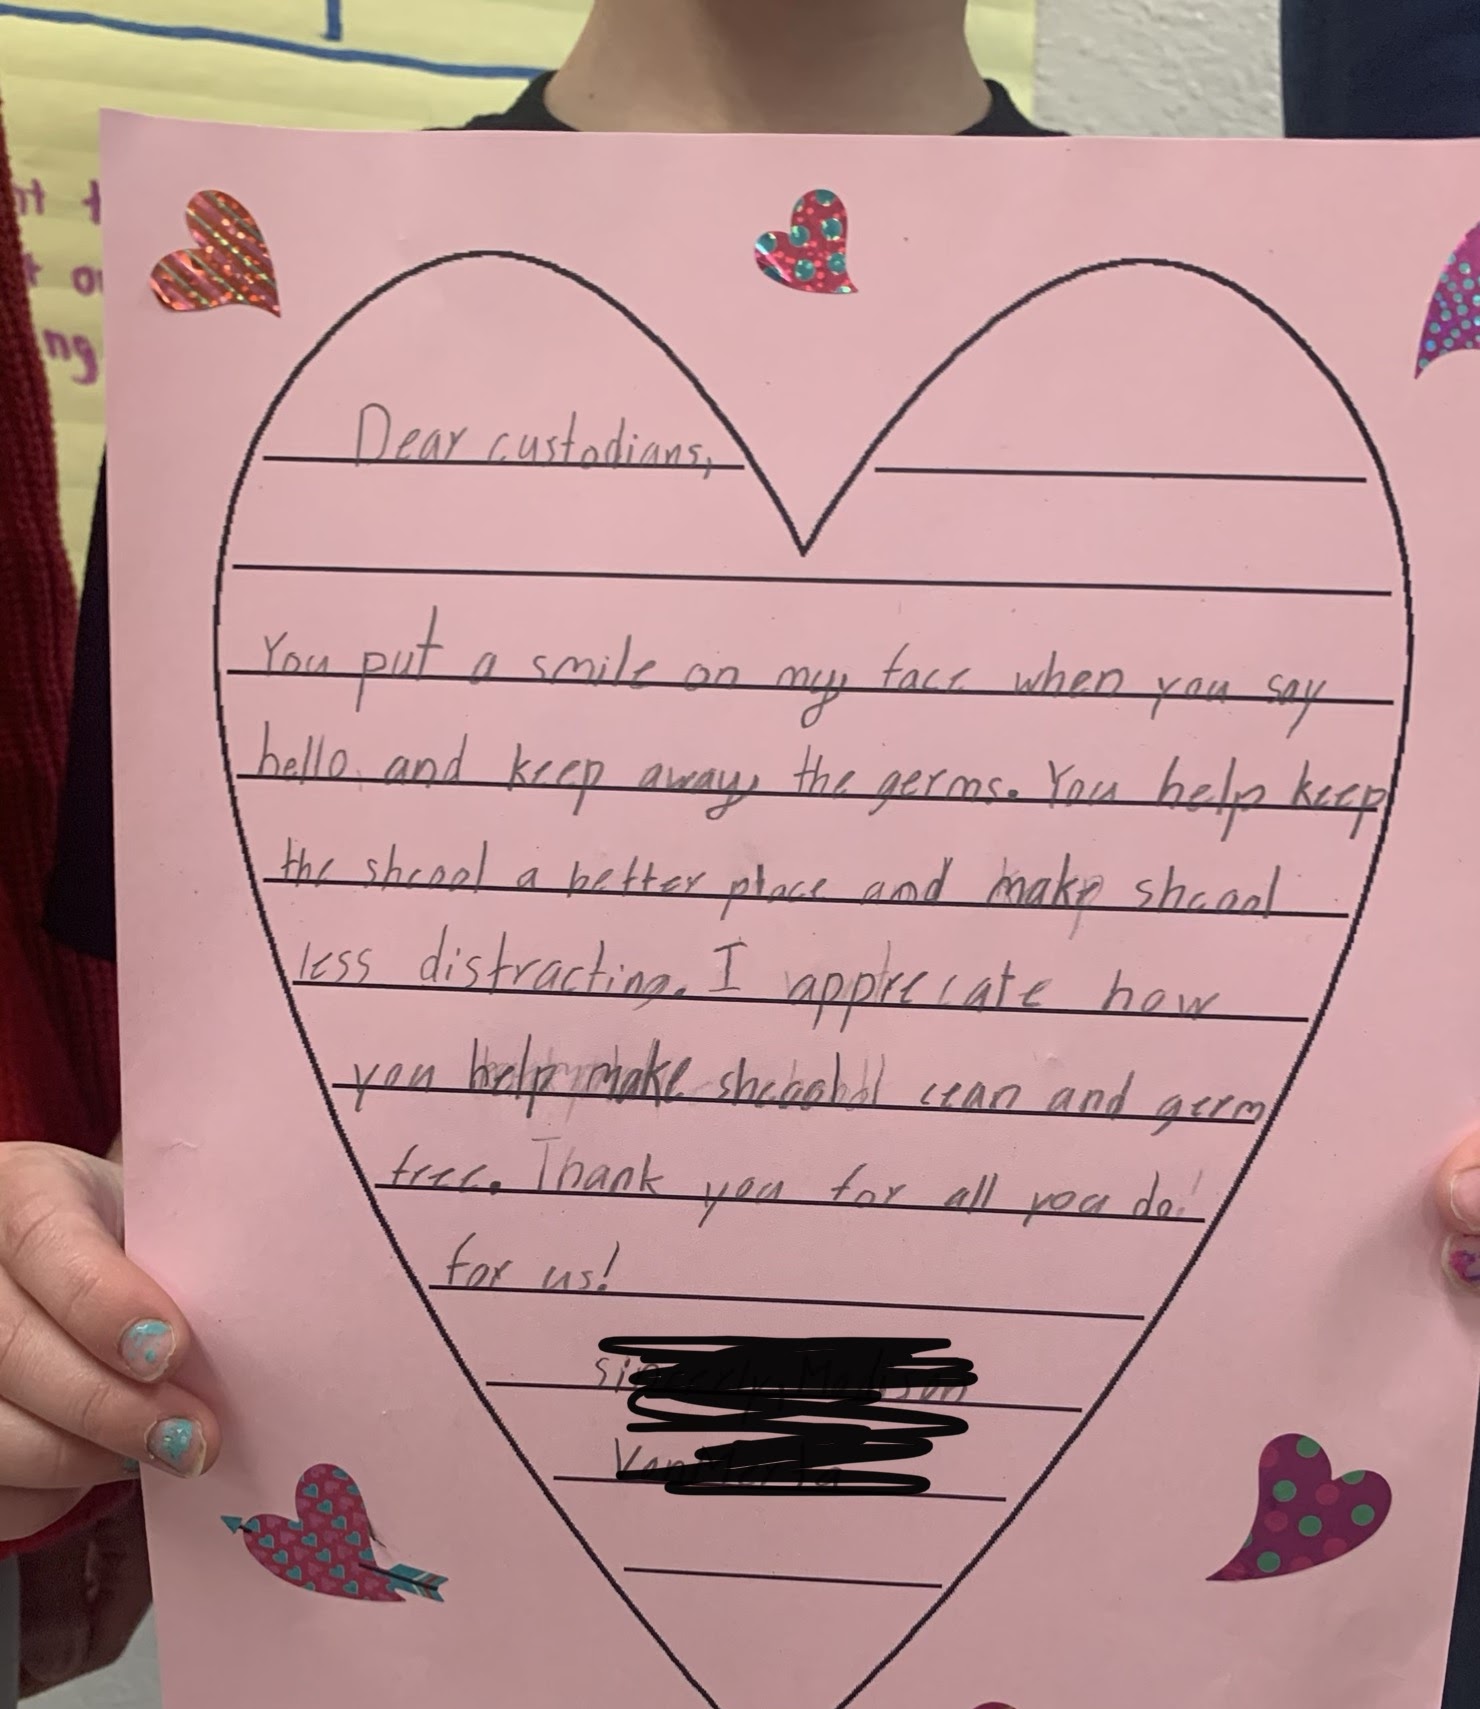 Dear custodians,
You put a smile on my face when you say
hello and keep away the germs. You help keep
the shcool a better place and make shcool
less distracting. I apprecate how
you help make shcool cean and germ
free. Thank you for all you do!
for us!